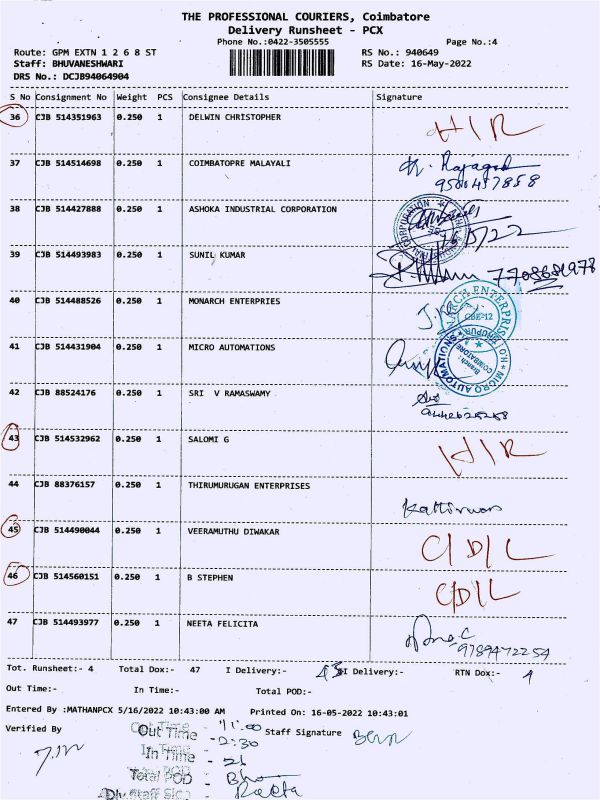 THE PROFESSIONAL COURIERS, Coimbatore
Delivery Runsheet - PCX
Phone No.:0422-3505555 Page No.:4
Route: GPM EXTN 1 2 6 8 ST RS No.: 940649
Staff: BHUVANESHWARI RS Date: 16-May-2022
DRS No.: DCJB94064904
S No Consignment No Weight PCS Consignee Details Signature
36 CJB 514351963 0.250 1 DELWIN CHRISTOPHER
37 CJB 514514698 0.250 1 COIMBATOPRE MALAYALI
38 CJB 514427888 0.250 1 ASHOKA INDUSTRIAL CORPORATION
39 CJB 514493983 0.250 1 SUNIL KUMAR
40 CJB 514488526 0.250 1 MONARCH ENTERPRIES
CBE-12
41 CJB 514431904 0.250 1 MICRO AUTOMATIONS
MICRO AUTOMATIONS Branch: COIMBATORE
42 CJB 88524176 0.250 1 SRI V RAMASWAMY
43 CJB 514532962 0.250 1 SALOMI G
44 CJB 88376157 0.250 1 THIRUMURUGAN ENTERPRISES
45 CJB 514490044 0.250 1 VEERAMUTHU DIWAKAR
46 CJB 514560151 0.250 1 B STEPHEN
47 CJB 514493977 0.250 1 NEETA FELICITA
9789472254
Tot. Runsheet:- 4 Total Dox:- 47 I Delivery:- 43 II Delivery:- RTN Dox:- 4
Out Time:- In Time:- Total POD:-
Entered By :MATHANPCX 5/16/2022 10:43:00 AM Printed On: 16-05-2022 10:43:01
Verified By Out Time - 11.00 Staff Signature
In Time - 2:30
Total POD
Dly.Staff Sig.